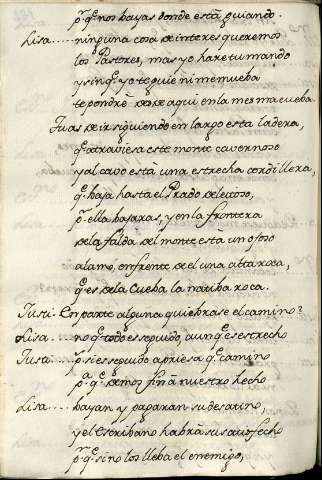 p.ʳ q̃ nos bayas donde está guiando.
Lisa..... ninguna cosa de interes queremos
los Pastores, mas yo hare tu mando
y sin q̃ yo te guie ni me mueba
te pondrè desde aqui en la mesma cueba.
Tu as de ir siguiendo en largo esta ladera,
q̃ atraviesa este monte cavernoso
y al cavo está una estrecha cordillera,
q̃ baja hasta el Prado deleitoso,
p.ʳ ella bajaras, y en la frontera
de la falda del monte esta un ojoso
alamo, enfrente de el una alta roca,
q̃ es de la Cueba la natiba voca.
Justi- En parte alguna quiebrase el camino?
Lisa... no q̃ todo es seguido, aunq̃ es estrecho
Justi.. p.ˢ si es seguido apriesa q̃ camino
p.ᵃ q̃ demos fin à nuestro hecho
Lisa.... bayan y pagaran su desatino,
y el Escribano habrà satisfecho
p.ʳ q̃ si no los lleba el enemigo,